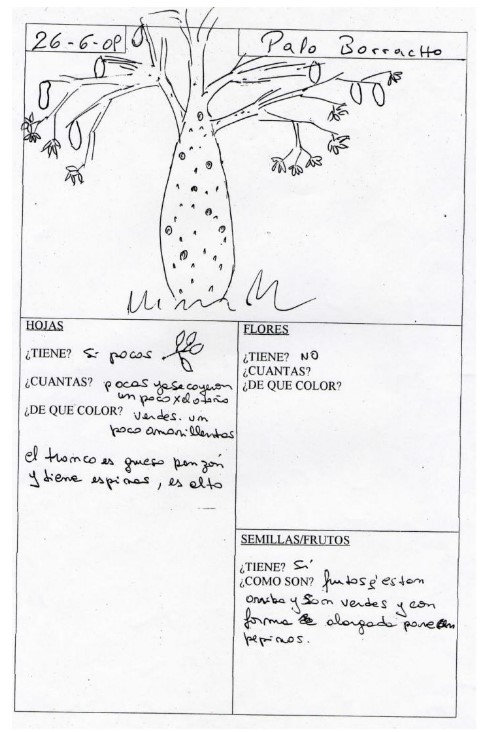 26-6-08
Palo Borracho
HOJAS
¿TIENE? Si pocas
¿CUANTAS? pocas yasecayeron
un poco x el otoño
¿DE QUE COLOR? verdes. un
poco amarillentas
el tronco es grueso panzón
y tiene espinas, es alto
FLORES
¿TIENE? NO
¿CUANTAS?
¿DE QUE COLOR?
SEMILLAS/FRUTOS
¿TIENE? Si
¿COMO SON? frutos estan
arriba y son verdes y con
forma alargada parecen
pepinos.